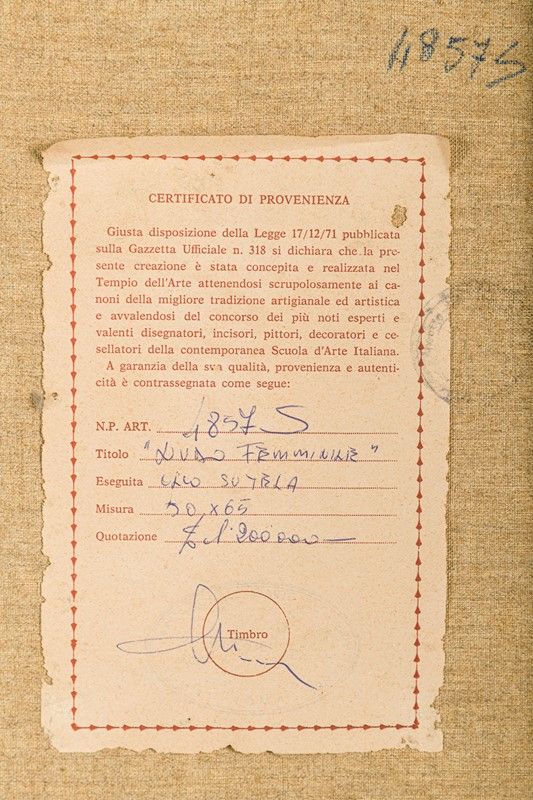 4857S
CERTIFICATO DI PROVENIENZA
Giusta disposizione della Legge 17/12/71 pubblicata
sulla Gazzetta Ufficiale n. 318 si dichiara che la pre-
sente creazione è stata concepita e realizzata nel
Tempio dell'Arte attenendosi scrupolosamente ai ca-
noni della migliore tradizione artigianale ed artistica
e avvalendosi del concorso dei più noti esperti e
valenti disegnatori, incisori, pittori, decoratori e ce-
sellatori della contemporanea Scuola d'Arte Italiana.
A garanzia della sua qualità, provenienza e autenti-
cità è contrassegnata come segue:
N.P. ART. 4857 S
Titolo "NUDO FEMMINILE"
Eseguita OLIO SU TELA
Misura 50 X 65
Quotazione £ 1.200.000
Timbro